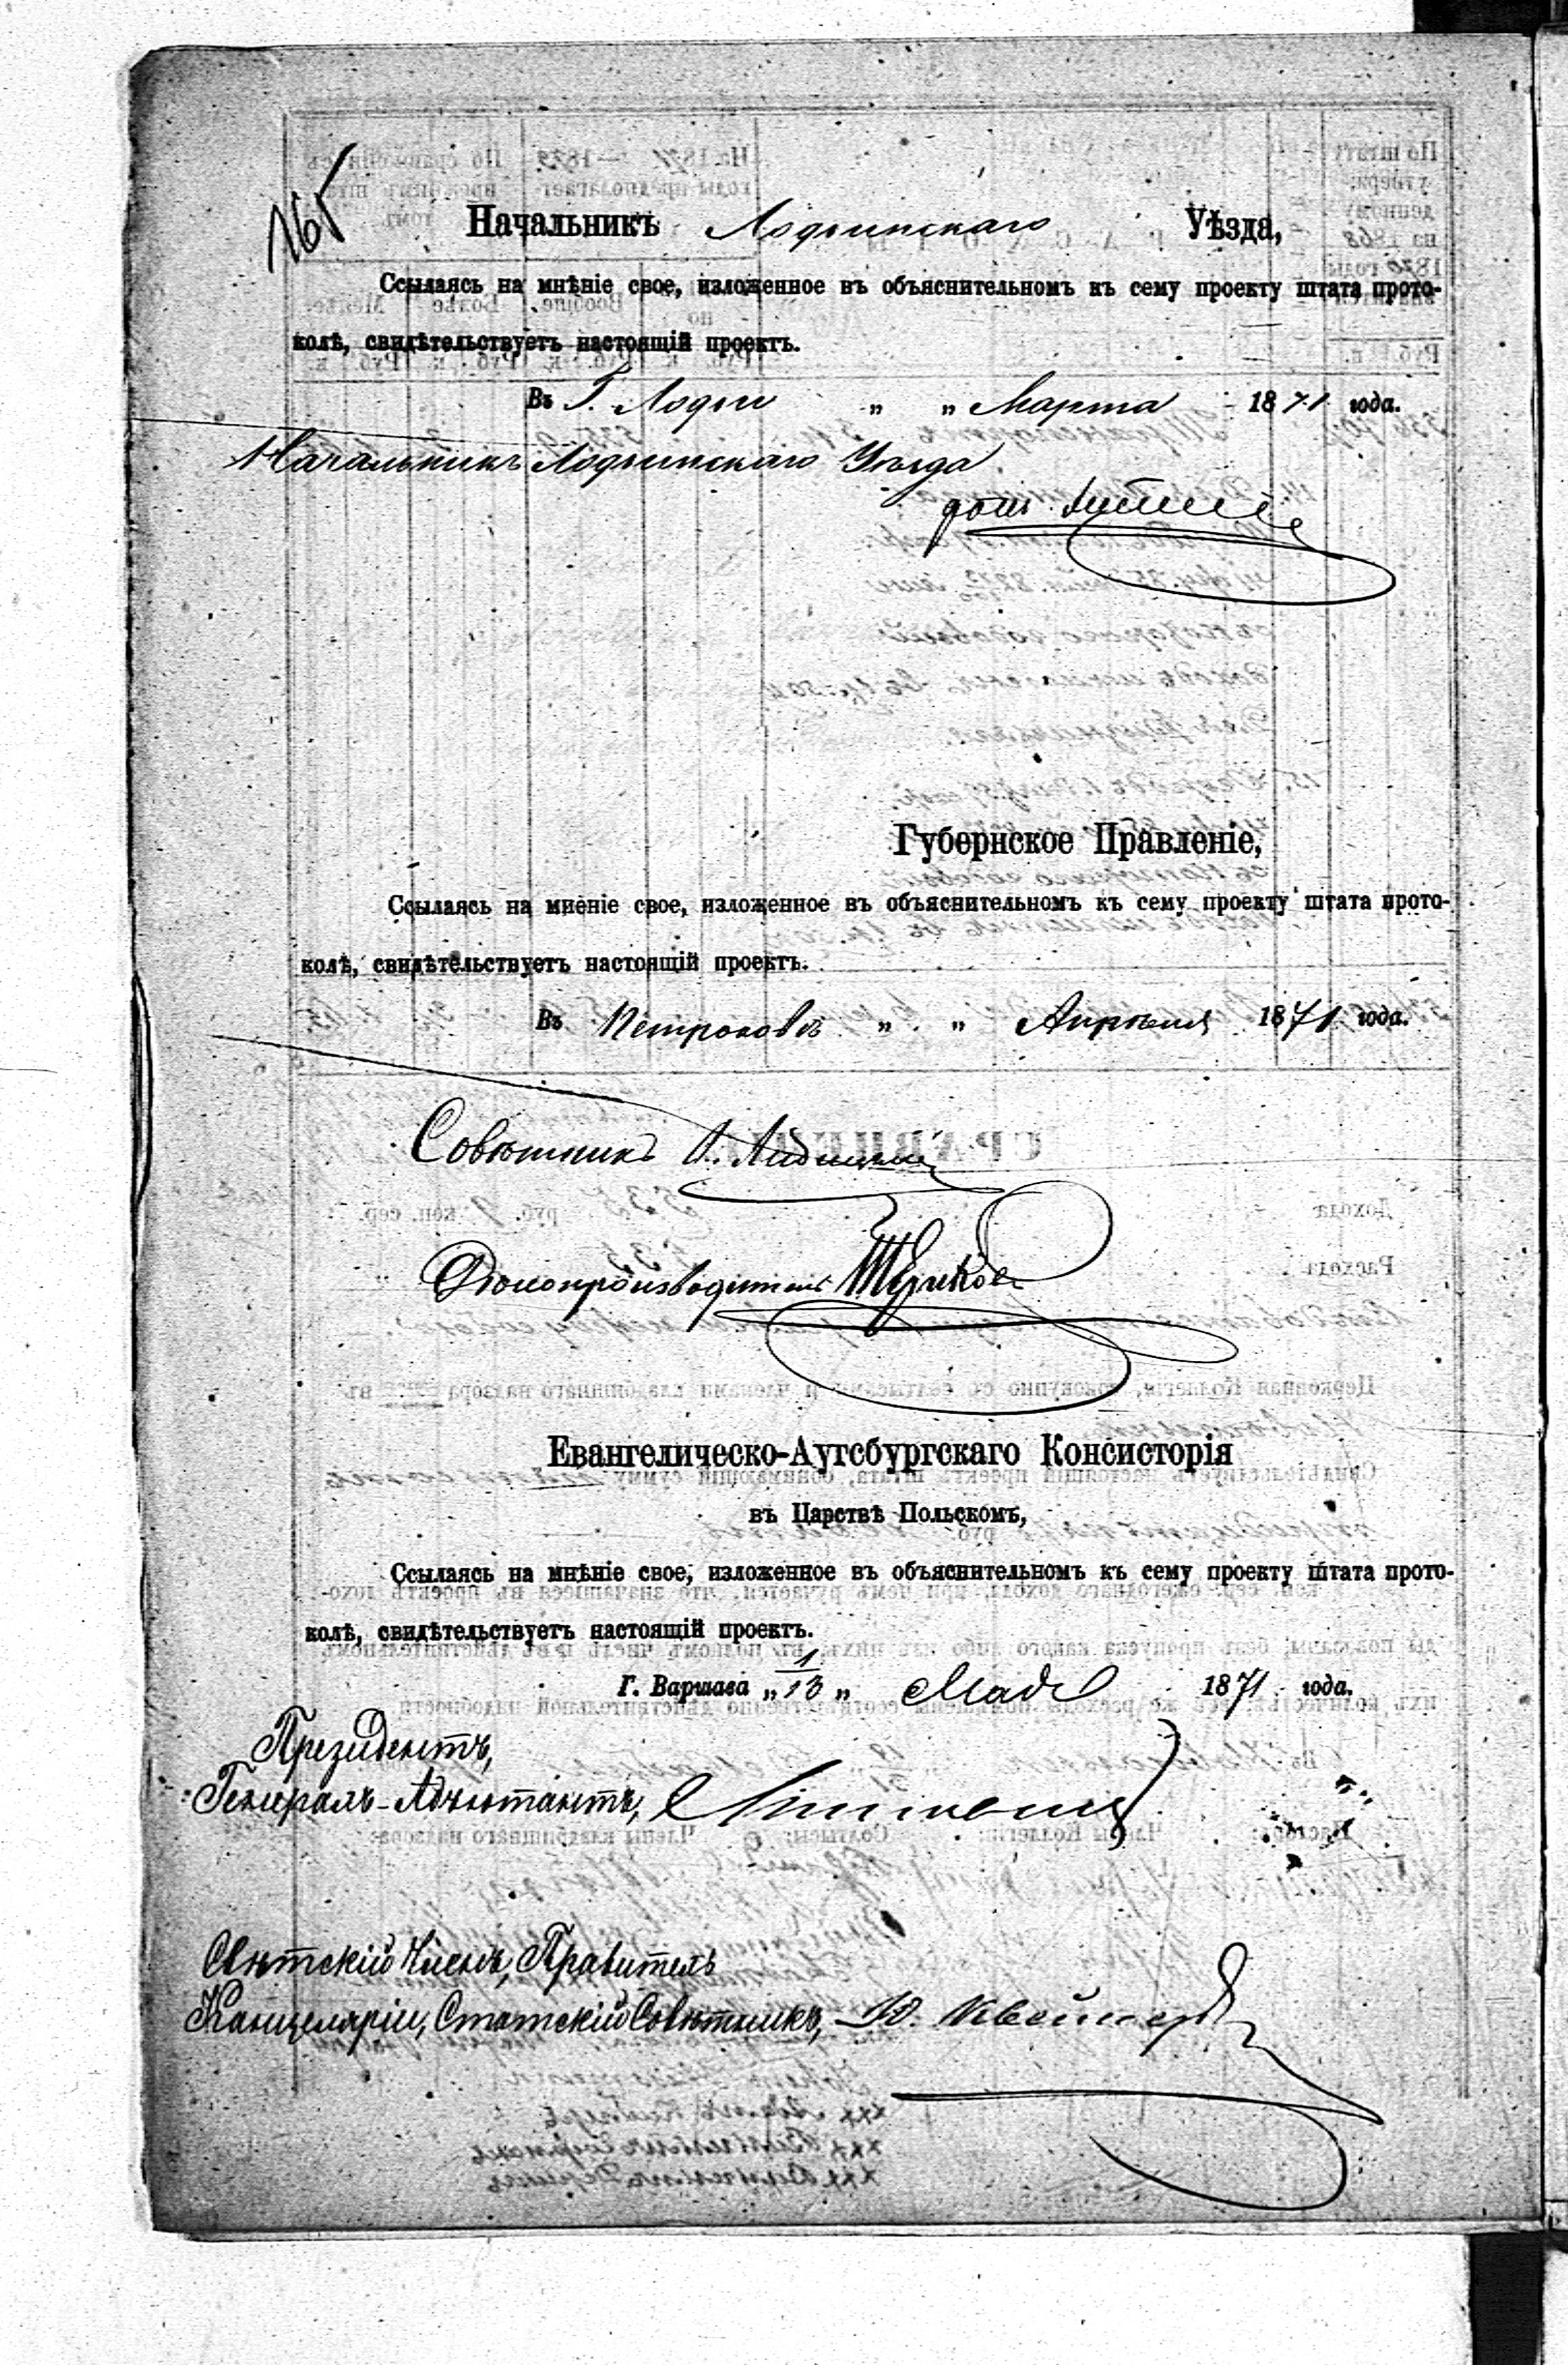 165
Начальникъ Лодзинскаго Уѣзда,
Ссылаясь на мнѣніе свое, изложенное въ объяснительномъ къ сему проекту штата прото-
колѣ, свидѣтельствуетъ настоящій проектъ.
Въ Г. Лодзи „ „ Марта 1871 года.
Начальникъ Лодзинскаго Уѣзда
Губернское Правленіе,
Ссылаясь на мнѣніе свое, изложенное въ объяснительномъ къ сему проекту штата прото-
колѣ, свидѣтельствуетъ настоящій проектъ.
Въ Петроковѣ „ „ Апрѣля 1871 года.
Совѣтникъ
Дѣлопроизводитель
Евангелическо-Аугсбургскаго Консисторія
въ Царствѣ Польскомъ,
Ссылаясь на мнѣніе свое, изложенное въ объяснительномъ къ сему проекту штата прото-
колѣ, свидѣтельствуетъ настоящій проектъ.
Г. Варшава „1/13„ Мая 1871 года.
Президентъ,
Генералъ-Адъютантъ,
Свѣтскій Членъ, Правитель
Канцеляріи, Статскій Совѣтникъ,